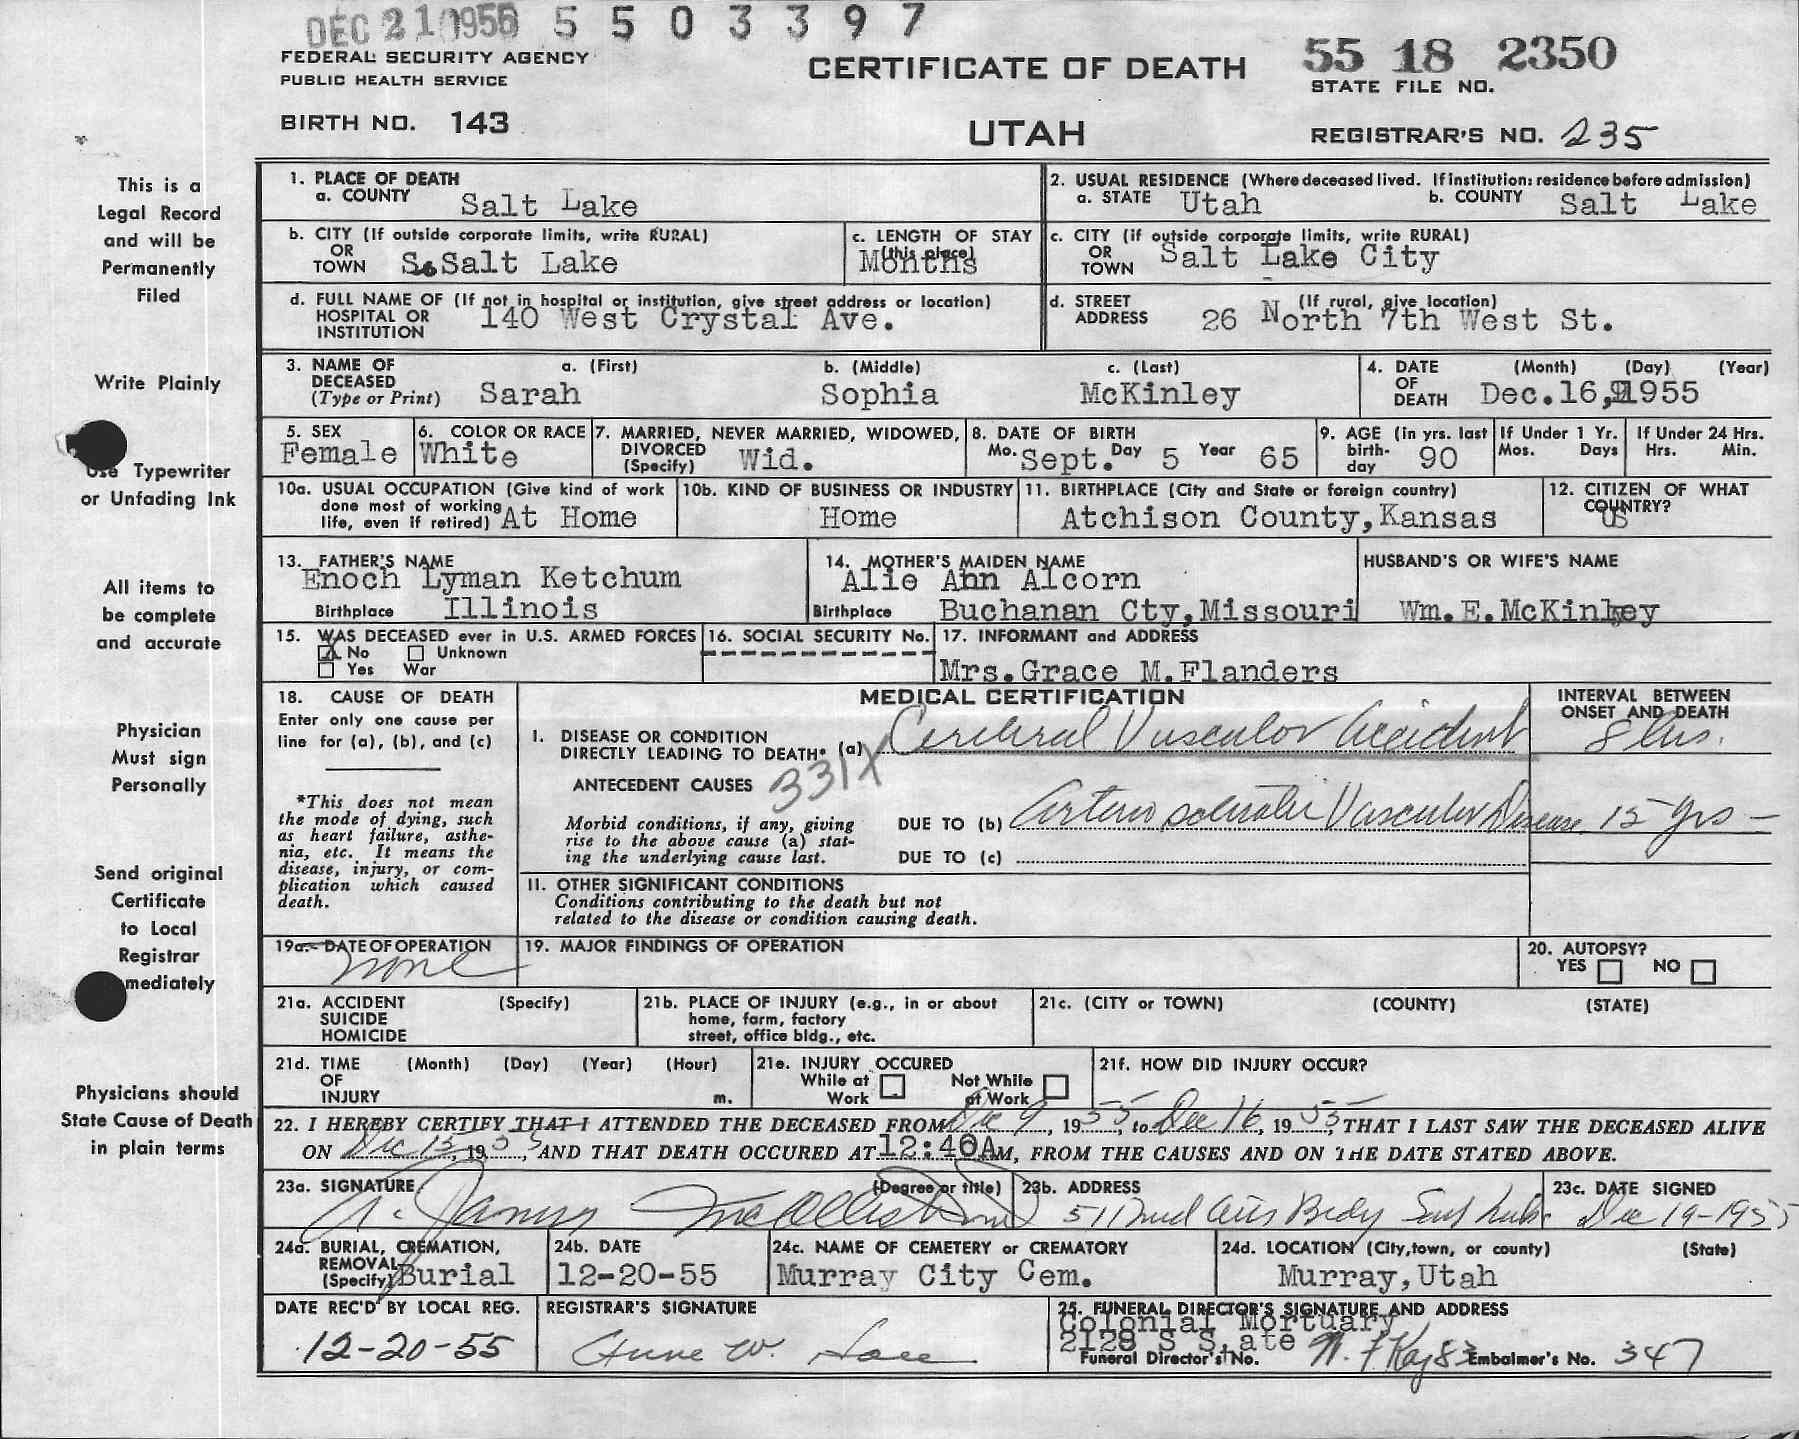 DEC 21 1955 5503397
FEDERAL SECURITY AGENCY
PUBLIC HEALTH SERVICE
CERTIFICATE OF DEATH
55 18 2350
STATE FILE NO.
BIRTH NO. 143
UTAH
REGISTRAR'S NO. 235
This is a
Legal Record
and will be
Permanently
Filed
Write Plainly
Use Typewriter
or Unfading Ink
All items to
be complete
and accurate
Physician
Must sign
Personally
Send original
Certificate
to Local
Registrar
mediately
Physicians should
State Cause of Death
in plain terms
1. PLACE OF DEATH
a. COUNTY Salt Lake
2. USUAL RESIDENCE (Where deceased lived. If institution: residence before admission)
a. STATE Utah b. COUNTY Salt Lake
b. CITY (If outside corporate limits, write RURAL)
OR
TOWN So Salt Lake
c. LENGTH OF STAY
(this place)
Months
c. CITY (if outside corporate limits, write RURAL)
OR
TOWN Salt Lake City
d. FULL NAME OF (If not in hospital or institution, give street address or location)
HOSPITAL OR
INSTITUTION 140 West Crystal Ave.
d. STREET (If rural, give location)
ADDRESS 26 North 7th West St.
3. NAME OF DECEASED (Type or Print)
a. (First) b. (Middle) c. (Last)
Sarah Sophia McKinley
4. DATE OF DEATH (Month) (Day) (Year)
Dec.16, 1955
5. SEX
Female
6. COLOR OR RACE
White
7. MARRIED, NEVER MARRIED, WIDOWED,
DIVORCED
(Specify) Wid.
8. DATE OF BIRTH
Mo. Sept. Day 5 Year 65
9. AGE (in yrs. last
birth-
day 90
If Under 1 Yr.
Mos. Days
If Under 24 Hrs.
Hrs. Min.
10a. USUAL OCCUPATION (Give kind of work
done most of working
life, even if retired) At Home
10b. KIND OF BUSINESS OR INDUSTRY
Home
11. BIRTHPLACE (City and State or foreign country)
Atchison County,Kansas
12. CITIZEN OF WHAT
COUNTRY?
US
13. FATHER'S NAME
Enoch Lyman Ketchum
Birthplace Illinois
14. MOTHER'S MAIDEN NAME
Alie Ann Alcorn
Birthplace Buchanan Cty,Missouri
HUSBAND'S OR WIFE'S NAME
Wm.E.McKinley
15. WAS DECEASED ever in U.S. ARMED FORCES
X No Unknown
Yes War
16. SOCIAL SECURITY No.
17. INFORMANT and ADDRESS
Mrs.Grace M.Flanders
18. CAUSE OF DEATH
Enter only one cause per
line for (a), (b), and (c)
*This does not mean
the mode of dying, such
as heart failure, asthe-
nia, etc. It means the
disease, injury, or com-
plication which caused
death.
MEDICAL CERTIFICATION
INTERVAL BETWEEN
ONSET AND DEATH
I. DISEASE OR CONDITION
DIRECTLY LEADING TO DEATH* (a) Cerebral Vascular Accident 8
ANTECEDENT CAUSES 331X
Morbid conditions, if any, giving
rise to the above cause (a) stat-
ing the underlying cause last.
DUE TO (b) Arterio sclerotic Vascular Disease 15 yrs —
DUE TO (c)
II. OTHER SIGNIFICANT CONDITIONS
Conditions contributing to the death but not
related to the disease or condition causing death.
19a. DATE OF OPERATION
none
19. MAJOR FINDINGS OF OPERATION
20. AUTOPSY?
YES NO
21a. ACCIDENT (Specify)
SUICIDE
HOMICIDE
21b. PLACE OF INJURY (e.g., in or about
home, farm, factory
street, office bldg., etc.
21c. (CITY or TOWN) (COUNTY) (STATE)
21d. TIME (Month) (Day) (Year) (Hour)
OF
INJURY m.
21e. INJURY OCCURED
While at Work Not While at Work
21f. HOW DID INJURY OCCUR?
22. I HEREBY CERTIFY THAT I ATTENDED THE DECEASED FROM Dec 9, 1955, to Dec 16, 1955, THAT I LAST SAW THE DECEASED ALIVE
ON Dec 15, 1955, AND THAT DEATH OCCURED AT 12:40A M, FROM THE CAUSES AND ON THE DATE STATED ABOVE.
23a. SIGNATURE (Degree or title)
A. James McAllister
23b. ADDRESS
511
23c. DATE SIGNED
Dec 19-1955
24a. BURIAL, CREMATION,
REMOVAL
(Specify) Burial
24b. DATE
12-20-55
24c. NAME OF CEMETERY or CREMATORY
Murray City Cem.
24d. LOCATION (City, town, or county) (State)
Murray,Utah
DATE REC'D BY LOCAL REG.
12-20-55
REGISTRAR'S SIGNATURE
W.
25. FUNERAL DIRECTOR'S SIGNATURE AND ADDRESS
Colonial Mortuary
2128 S State
Funeral Director's No. 83 Embalmer's No. 347